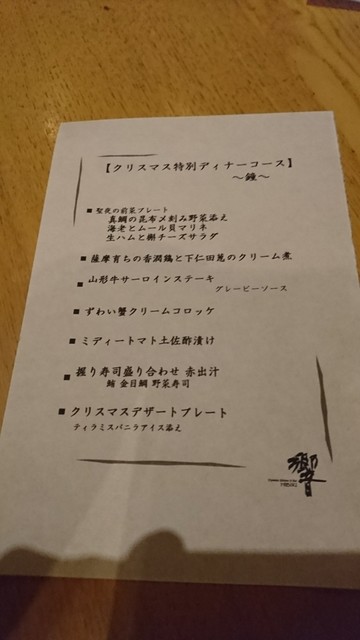 【クリスマス特別ディナーコース】
～鐘～
■ 聖夜の前菜プレート
真鯛の昆布〆刻み野菜添え
海老とムール貝マリネ
生ハムと榭チーズサラダ
■ 薩摩育ちの香潤鶏と下仁田葱のクリーム煮
■ 山形牛サーロインステーキ
グレービーソース
■ ずわい蟹クリームコロッケ
■ ミディートマト土佐酢漬け
■ 握り寿司盛り合わせ 赤出汁
鮪 金目鯛 野菜寿司
■ クリスマスデザートプレート
ティラミスバニラアイス添え
響
HIBIKI